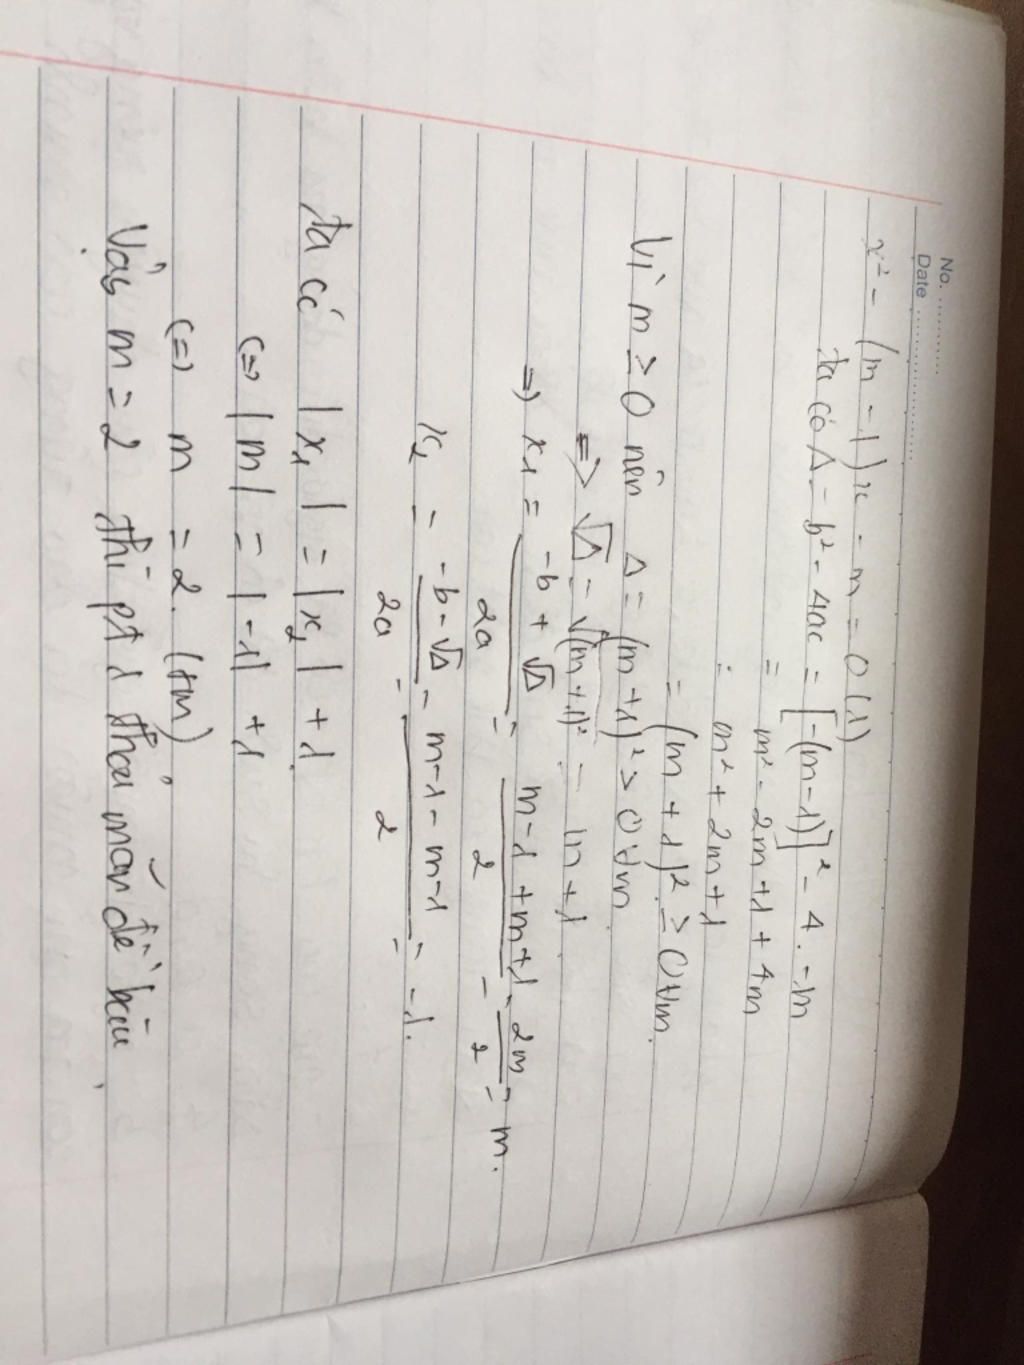 No. ............
Date ....................
x² - (m - 1)x - m = 0 (1)
ta có Δ = b² - 4ac = [-(m-1)]² - 4 . -m
= m² - 2m + 1 + 4m
= m² + 2m + 1
= (m + 1)² ≥ 0 ∀m.
Vì m ≥ 0 nên Δ = (m + 1)² > 0 ∀m
=> √Δ = √(m + 1)² = m + 1
=> x₁ = (-b + √Δ)/2a = (m - 1 + m + 1)/2 = 2m/2 = m.
x₂ = (-b - √Δ)/2a = (m - 1 - m - 1)/2 = -1.
ta có |x₁| = |x₂| + 1
(=) |m| = |-1| + 1
(=) m = 2. (tm)
Vậy m = 2 thì pt 1 thỏa mãn đề bài.